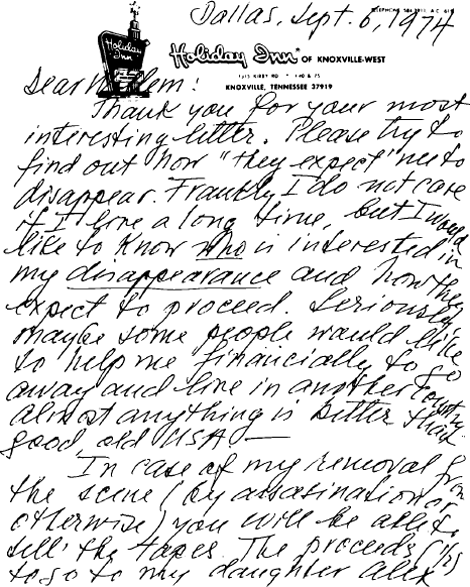 Dallas, Sept. 6, 1974
Holiday Inn
Holiday Inn OF KNOXVILLE-WEST
KNOXVILLE, TENNESSEE 37919
Dear Willem:
Thank you for your most
interesting letter. Please try to
find out how "they expect" me to
disappear. Frankly I do not care
if I live a long time, but I would
like to know who is interested in
my disappearance and how they
expect to proceed. Seriously
maybe some people would like
to help me financially to go
away and live in another country.
Almost anything is better than
good old USA —
In case of my removal from
the scene (by assasination or
otherwise) you will be able to
sell the tapes. The proceeds
to go to my daughter Alex